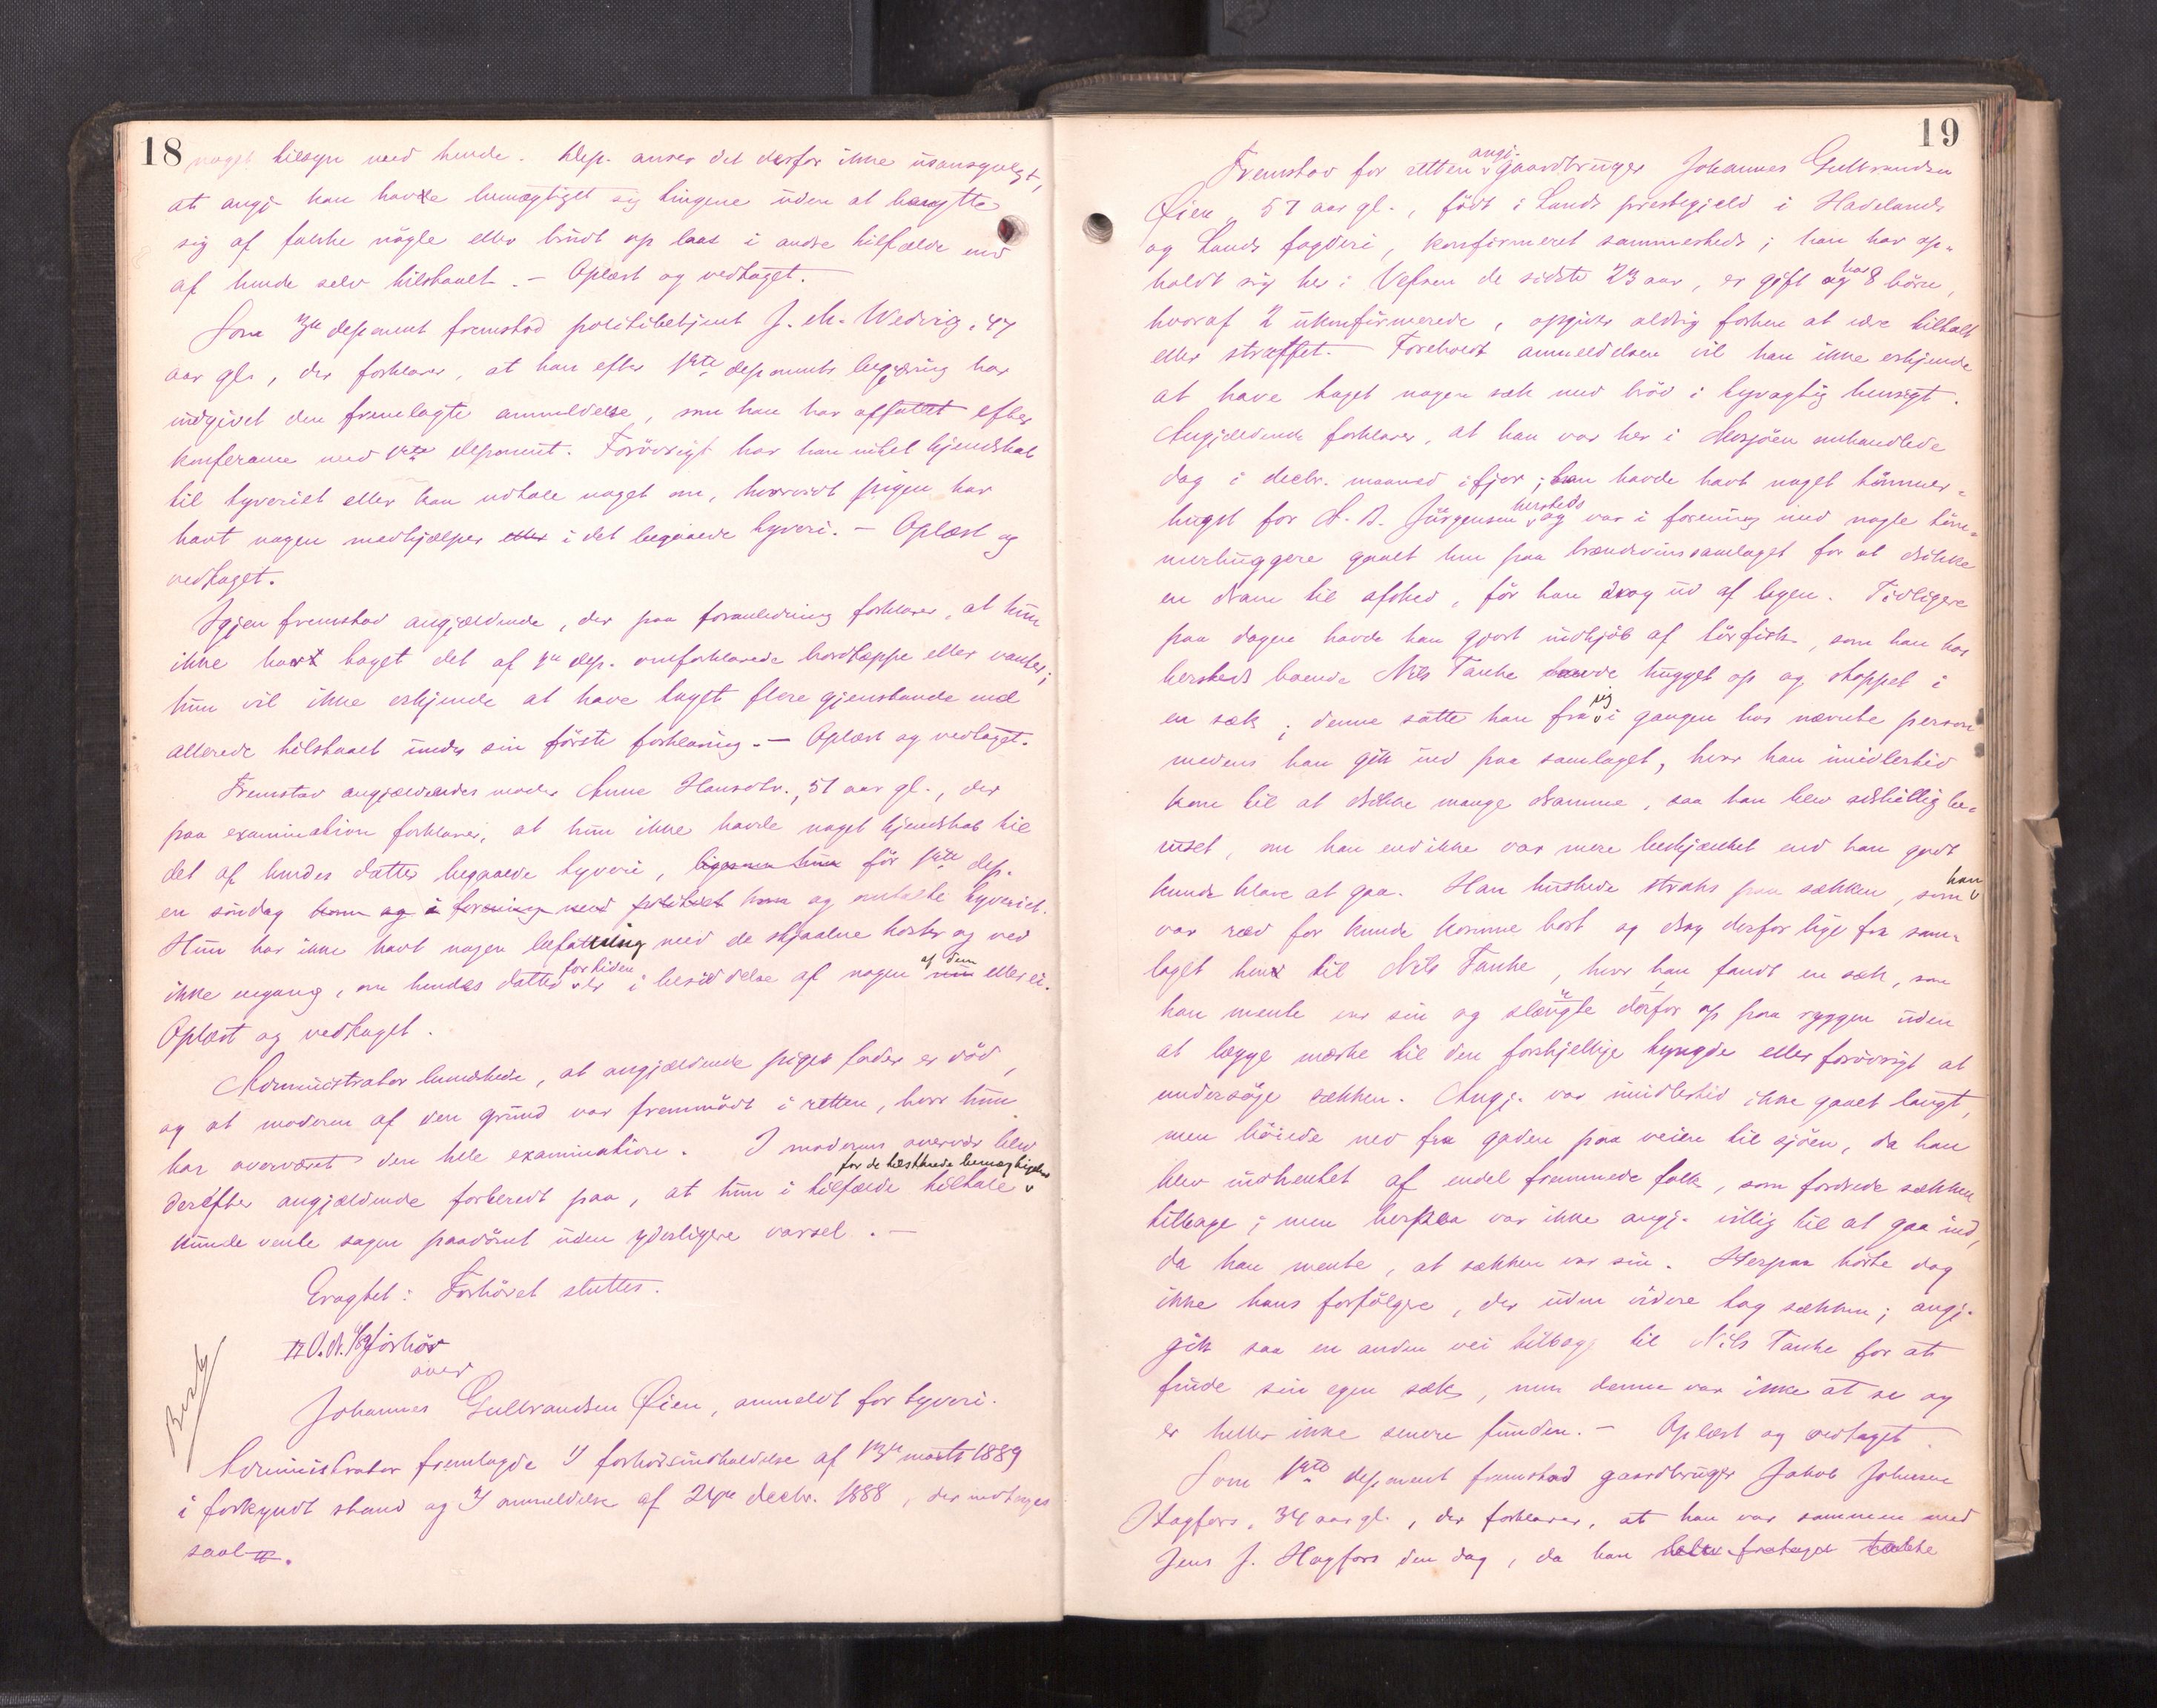 18
noget tilsyn med hende. Dep. anser det derfor ikke usansynligt,
at angj. kan have bemægtiget sig tingene uden at benytte
sig af falske nögle eller brudt op laas i andre tilfælde end
af hende selv tilstaaet. – Oplæst og vedtaget.
Som 3die deponent fremstod politibetjent J. M. Wedvig, 47
aar gl., der forklarer, at han efter 1ste deponents begjæring har
indgivet den fremlagte anmeldelse, som han har affattet efter
konferance med 1ste deponent. Forövrigt har han intet kjendskab
til tyveriet eller kan udtale noget om, hvorvidt pigen har
havt nogen medhjælper eller i det begaaede tyveri. – Oplæst og
vedtaget.
Igjen fremstod angjældende, der paa foranledning forklarer, at hun
ikke har taget det af 1ste dep. omforklarede bordtæppe eller vanter;
hun vil ikke erkjende at have taget flere gjenstande end
allerede tilstaaet under sin förste forklaring. – Oplæst og vedtaget.
Fremstod angjældendes moder Anne Hansdtr., 51 aar gl., der
paa examination forklarer, at hun ikke havde noget kjendskab til
det af hendes datter begaaede tyveri, ligesom hun för 1ste dep.
en söndag kom og i forening med politiet kom og omtalte tyveriet.
Hun har ikke havt nogen befatning med de stjaalne koster og ved
ikke engang, om hendes datter fortiden er i besiddelse af nogen af dem eller ei.
Oplæst og vedtaget.
Administrator bemærkede, at angjældende piges fader er död,
og at moderen af den grund var fremmödt i retten, hvor hun
har overværet den hele examination. I moderens overvær blev
for de tilstaaede bemægtigelser
derefter angjældende forberedt paa, at hun i tilfælde tiltale
kunde vente sagen paadömt uden yderligere varsel. –
Eragtet: Forhöret sluttes.
forhör
over
Johannes Gulbrandsen Öien, anmeldt for tyveri.
Administrator fremlagde 1) forhörsindkaldelse af 13de marts 1889
i forkyndt stand og 2) anmeldelse af 24de decbr. 1888, der modtoges
saal.
19
Fremstod for retten angj. gaardbruger Johannes Gulbrandsen
Öien, 57 aar gl., födt i Lands prestegjeld i Hadelands
og Lands fogderi, konfirmeret sammesteds; han har op-
holdt sig her i Vefsen de sidste 23 aar, er gift og har 8 börn,
hvoraf 2 ukonfirmerede, opgives aldrig forhen at være tiltalt
eller straffet. Foreholdt anmeldelsen vil han ikke erkjende
at have taget nogen sæk med bröd i tyvagtig hensigt.
Angjældende forklarer, at han var her i Mosjöen omhandlede
dag i decbr. maaned ifjor; han havde havt noget tömmer-
hugst for A. B. Jürgensen hersteds og var i forening med nogle töm-
merhuggere gaaet hen paa brændevinssamlaget for at drikke
en dram til afsked, för han drog ud af byen. Tidligere
paa dagen havde han gjort indkjöb af törfisk, som han hos
hersteds boende Nils Tanke havde hugget op og stoppet i
en sæk; denne satte han fra sig i gangen hos nævnte person
medens han gik ind paa samlaget, hvor han imidlertid
kom til at drikke mange dramme, saa han blev adskillig be-
ruset, om han end ikke var mere beskjænket end han godt
kunde klare at gaa. Han huskede straks paa sækken, som han
var ræd for kunde komme bort og drog derfor lige fra sam-
laget hen til Nils Tanke, hvor han fandt en sæk, som
han mente var sin og slængte derfor op paa ryggen uden
at lægge mærke til den forskjellige tyngde eller forövrigt at
undersöge sækken. Angj. var imidlertid ikke gaaet langt,
men böiede ned fra gaden paa veien til sjöen, da han
blev indhentet af endel fremmede folk, som fordrede sækken
tilbage; men herpaa var ikke angj. villig til at gaa ind,
da han mente, at sækken var sin. Herpaa hörte dog
ikke hans forfölgere, der uden videre tog sækken; angj.
gik saa en anden vei tilbage til Nils Tanke for at
finde sin egen sæk, men denne var ikke at se og
er heller ikke senere funden. – Oplæst og vedtaget.
Som 1ste deponent fremstod gaardbruger Jakob Johnsen
Hagfors, 34 aar gl., der forklarer, at han var sammen med
Jens J. Hagfors den dag, da han blev fratagen